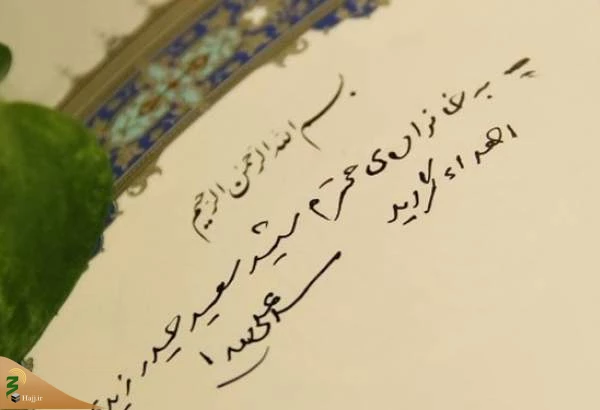 بسم الله الرحمن الرحیم
به خانواده‌ی محترم شهید سعید حیدر
اهداء گردید
Hajj.ir